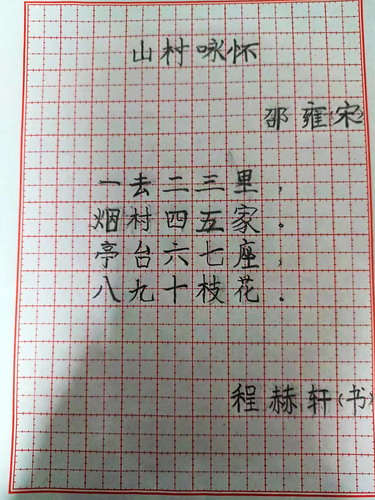 山村咏怀
邵雍(宋)
一去二三里,
烟村四五家。
亭台六七座,
八九十枝花.
程赫轩(书)